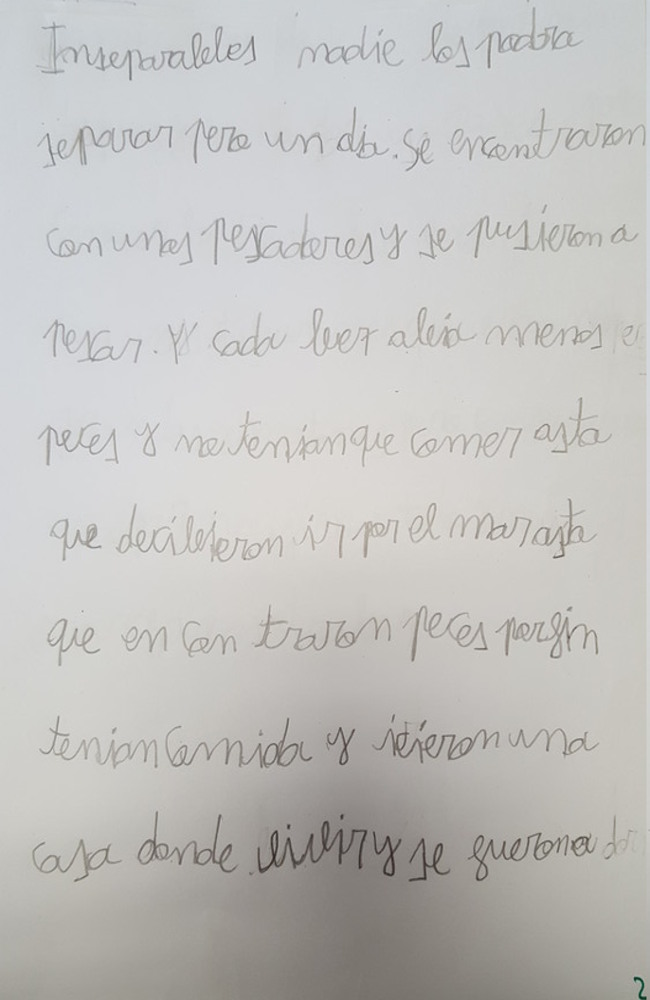 Inseparables nadie los podra
separar pero un dia. se encontraron
con unos pescadores y se pusieron a
pescar. Y cada
peces y no tenian que comer asta
que ir por el mar asta
que en con traron peces porfin
tenian comida y icieron una
casa donde vivir y se fueron a
2